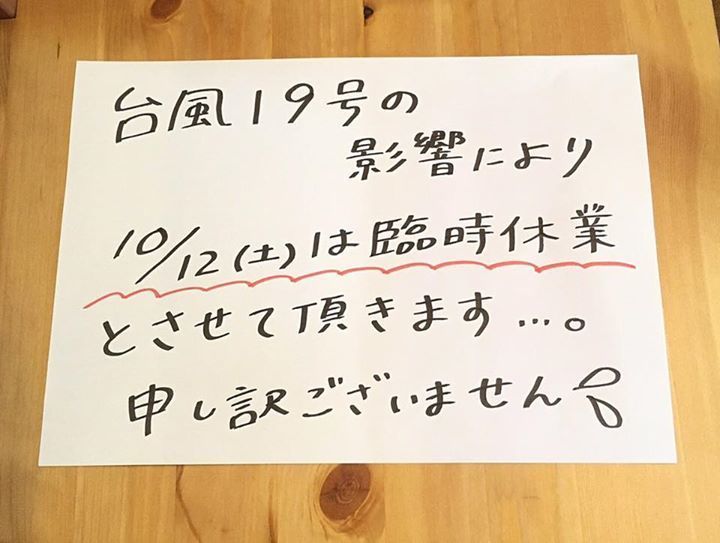 台風19号の
影響により
10/12(土)は臨時休業
とさせて頂きます…。
申し訳ございません